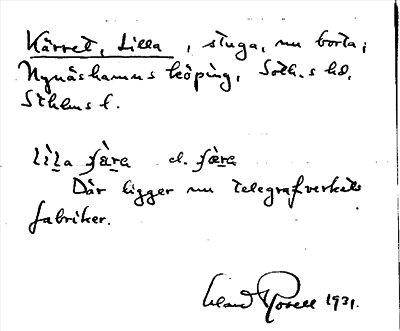 Kärret, Lilla, stuga, nu borta;
Nynäshamns köping, Soth.s hd,
Sthlms l.
lìla ʃære el. ʃære
Där ligger nu telegrafverkets
fabriker.
Rosell 1931.